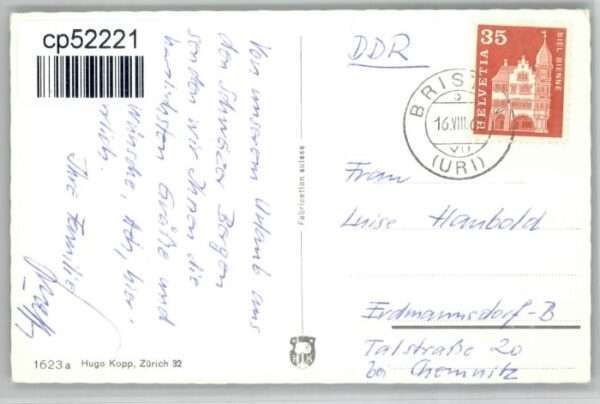 cp52221
Von unserem Urlaub aus
den Schweizer Bergen
senden wir Ihnen die
herzlichsten Grüße und
Wünsche,
Ihre Familie
Fabrication suisse
1623a Hugo Kopp, Zürich 32
DDR
35
HELVETIA
BIEL-BIENNE
BRIS
16.VIII.6
(URI)
Frau
Luise Haubold
Erdmannsdorf-B
Talstraße 20
bei Chemnitz